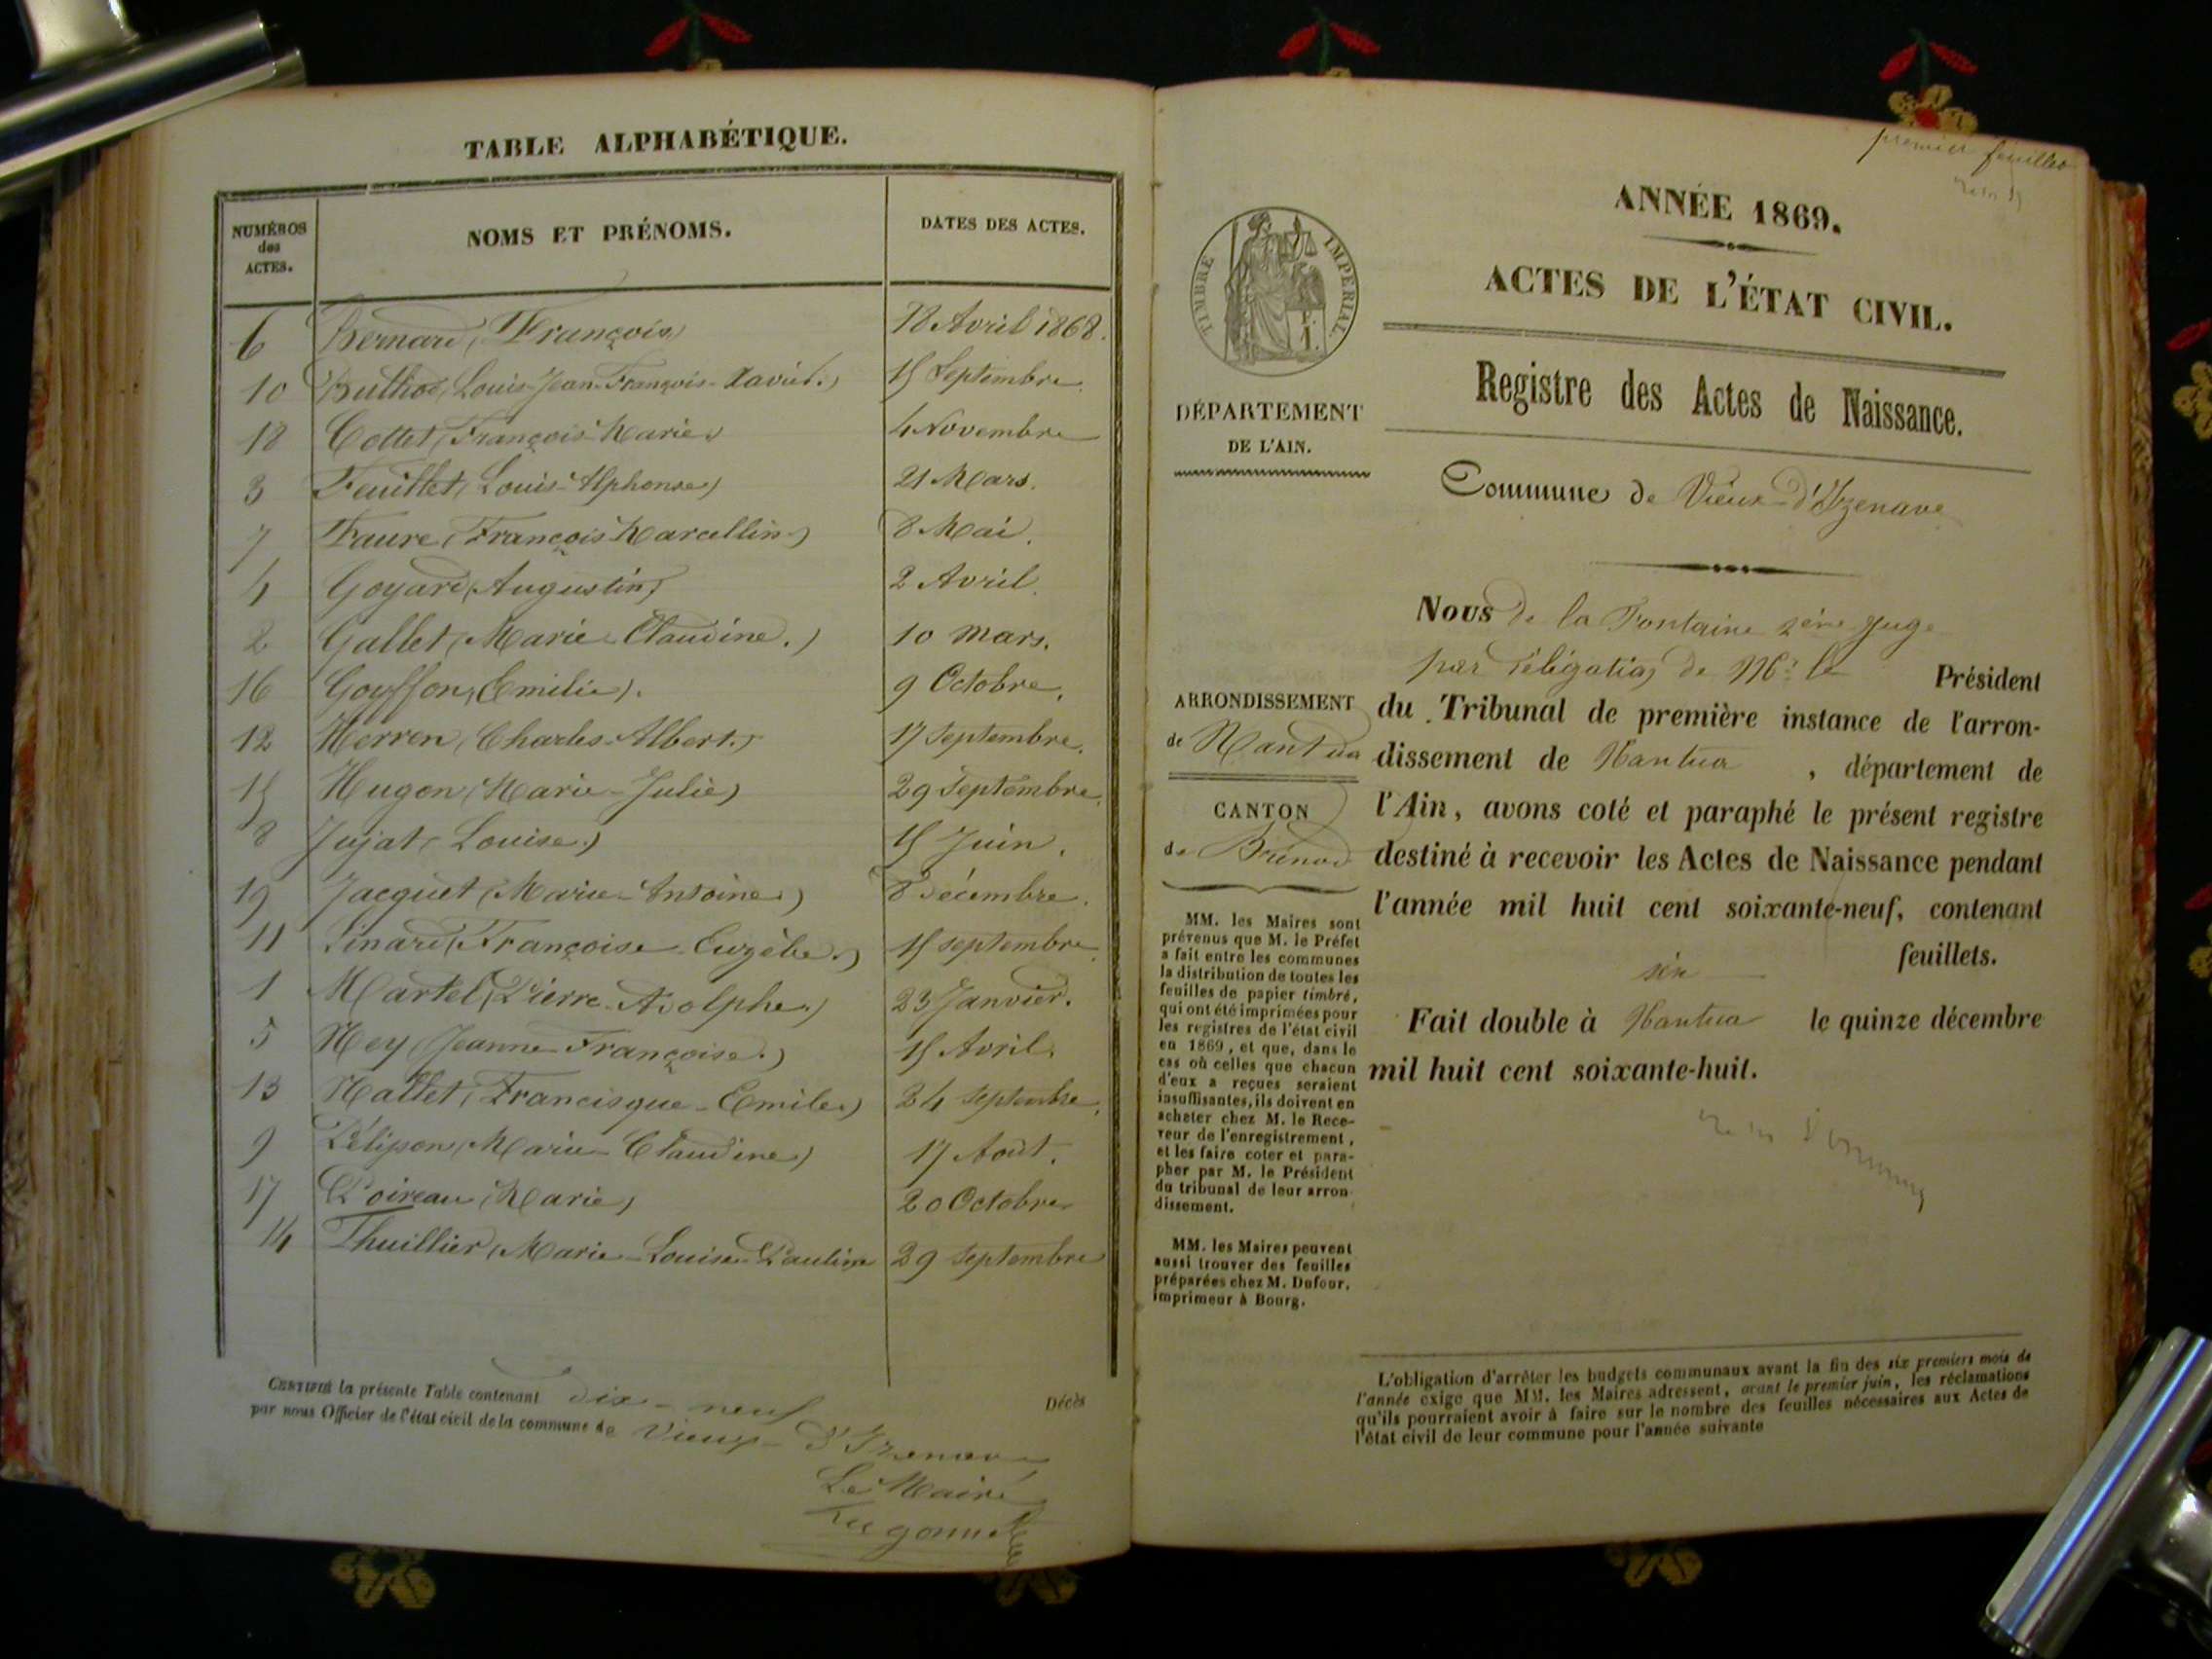 TABLE ALPHABÉTIQUE.
NUMÉROS des ACTES.
NOMS ET PRÉNOMS.
DATES DES ACTES.
6 Bernard (François) 18 Avril 1868.
10 Buthod (Louis-Jean-François-Xavier.) 15 Septembre.
18 Cottet (François Marie) 4 Novembre
3 Feuillet (Louis-Alphonse) 21 Mars.
7 Faure (François Marcellin) 8 Mai.
4 Goyard (Augustin) 2 Avril.
2 Gallet (Marie-Claudine.) 10 mars.
16 Gouffon (Emilie). 9 Octobre.
12 Herren (Charles-Albert.) 17 Septembre.
15 Hugon (Marie-Julie) 29 Septembre.
8 Jujat (Louise.) 15 Juin.
19 Jacquet (Marie-Antoine.) 8 Décembre.
11 Linard (Françoise-Euzèbe.) 15 septembre.
1 Martel (Pierre-Adolphe.) 23 Janvier.
5 Ney (Jeanne-Françoise.) 15 Avril.
13 Nallet (Francisque-Emile.) 24 septembre.
9 Pélisson (Marie-Claudine) 17 Août.
17 Poireau (Marie) 20 Octobre
14 Thuillier (Marie-Louise-Pauline 29 septembre
CERTIFIÉ la présente Table contenant dix-neuf Décès
par nous Officier de l'état civil de la commune de Vieux-d'Izenave
Le Maire
premier feuillet
ANNÉE 1869.
ACTES DE L'ÉTAT CIVIL.
Registre des Actes de Naissance.
Commune de Vieux-d'Izenave
TIMBRE IMPÉRIAL.
DÉPARTEMENT
DE L'AIN.
ARRONDISSEMENT
de Nantua
CANTON
de Brénod
MM. les Maires sont
prévenus que M. le Préfet
a fait entre les communes
la distribution de toutes les
feuilles de papier timbré,
qui ont été imprimées pour
les registres de l'état civil
en 1869, et que, dans le
cas où celles que chacun
d'eux a reçues seraient
insuffisantes, ils doivent en
acheter chez M. le Rece-
veur de l'enregistrement,
et les faire coter et para-
pher par M. le Président
du tribunal de leur arron-
dissement.
MM. les Maires peuvent
aussi trouver des feuilles
préparées chez M. Dufour,
imprimeur à Bourg.
Nous de la Fontaine juge
par délégation de Mr le Président
du Tribunal de première instance de l'arron-
dissement de Nantua, département de
l'Ain, avons coté et paraphé le présent registre
destiné à recevoir les Actes de Naissance pendant
l'année mil huit cent soixante-neuf, contenant
six feuillets.
Fait double à Nantua le quinze décembre
mil huit cent soixante-huit.
L'obligation d'arrêter les budgets communaux avant la fin des six premiers mois de
l'année exige que MM. les Maires adressent, avant le premier juin, les réclamations
qu'ils pourraient avoir à faire sur le nombre des feuilles nécessaires aux Actes de
l'état civil de leur commune pour l'année suivante